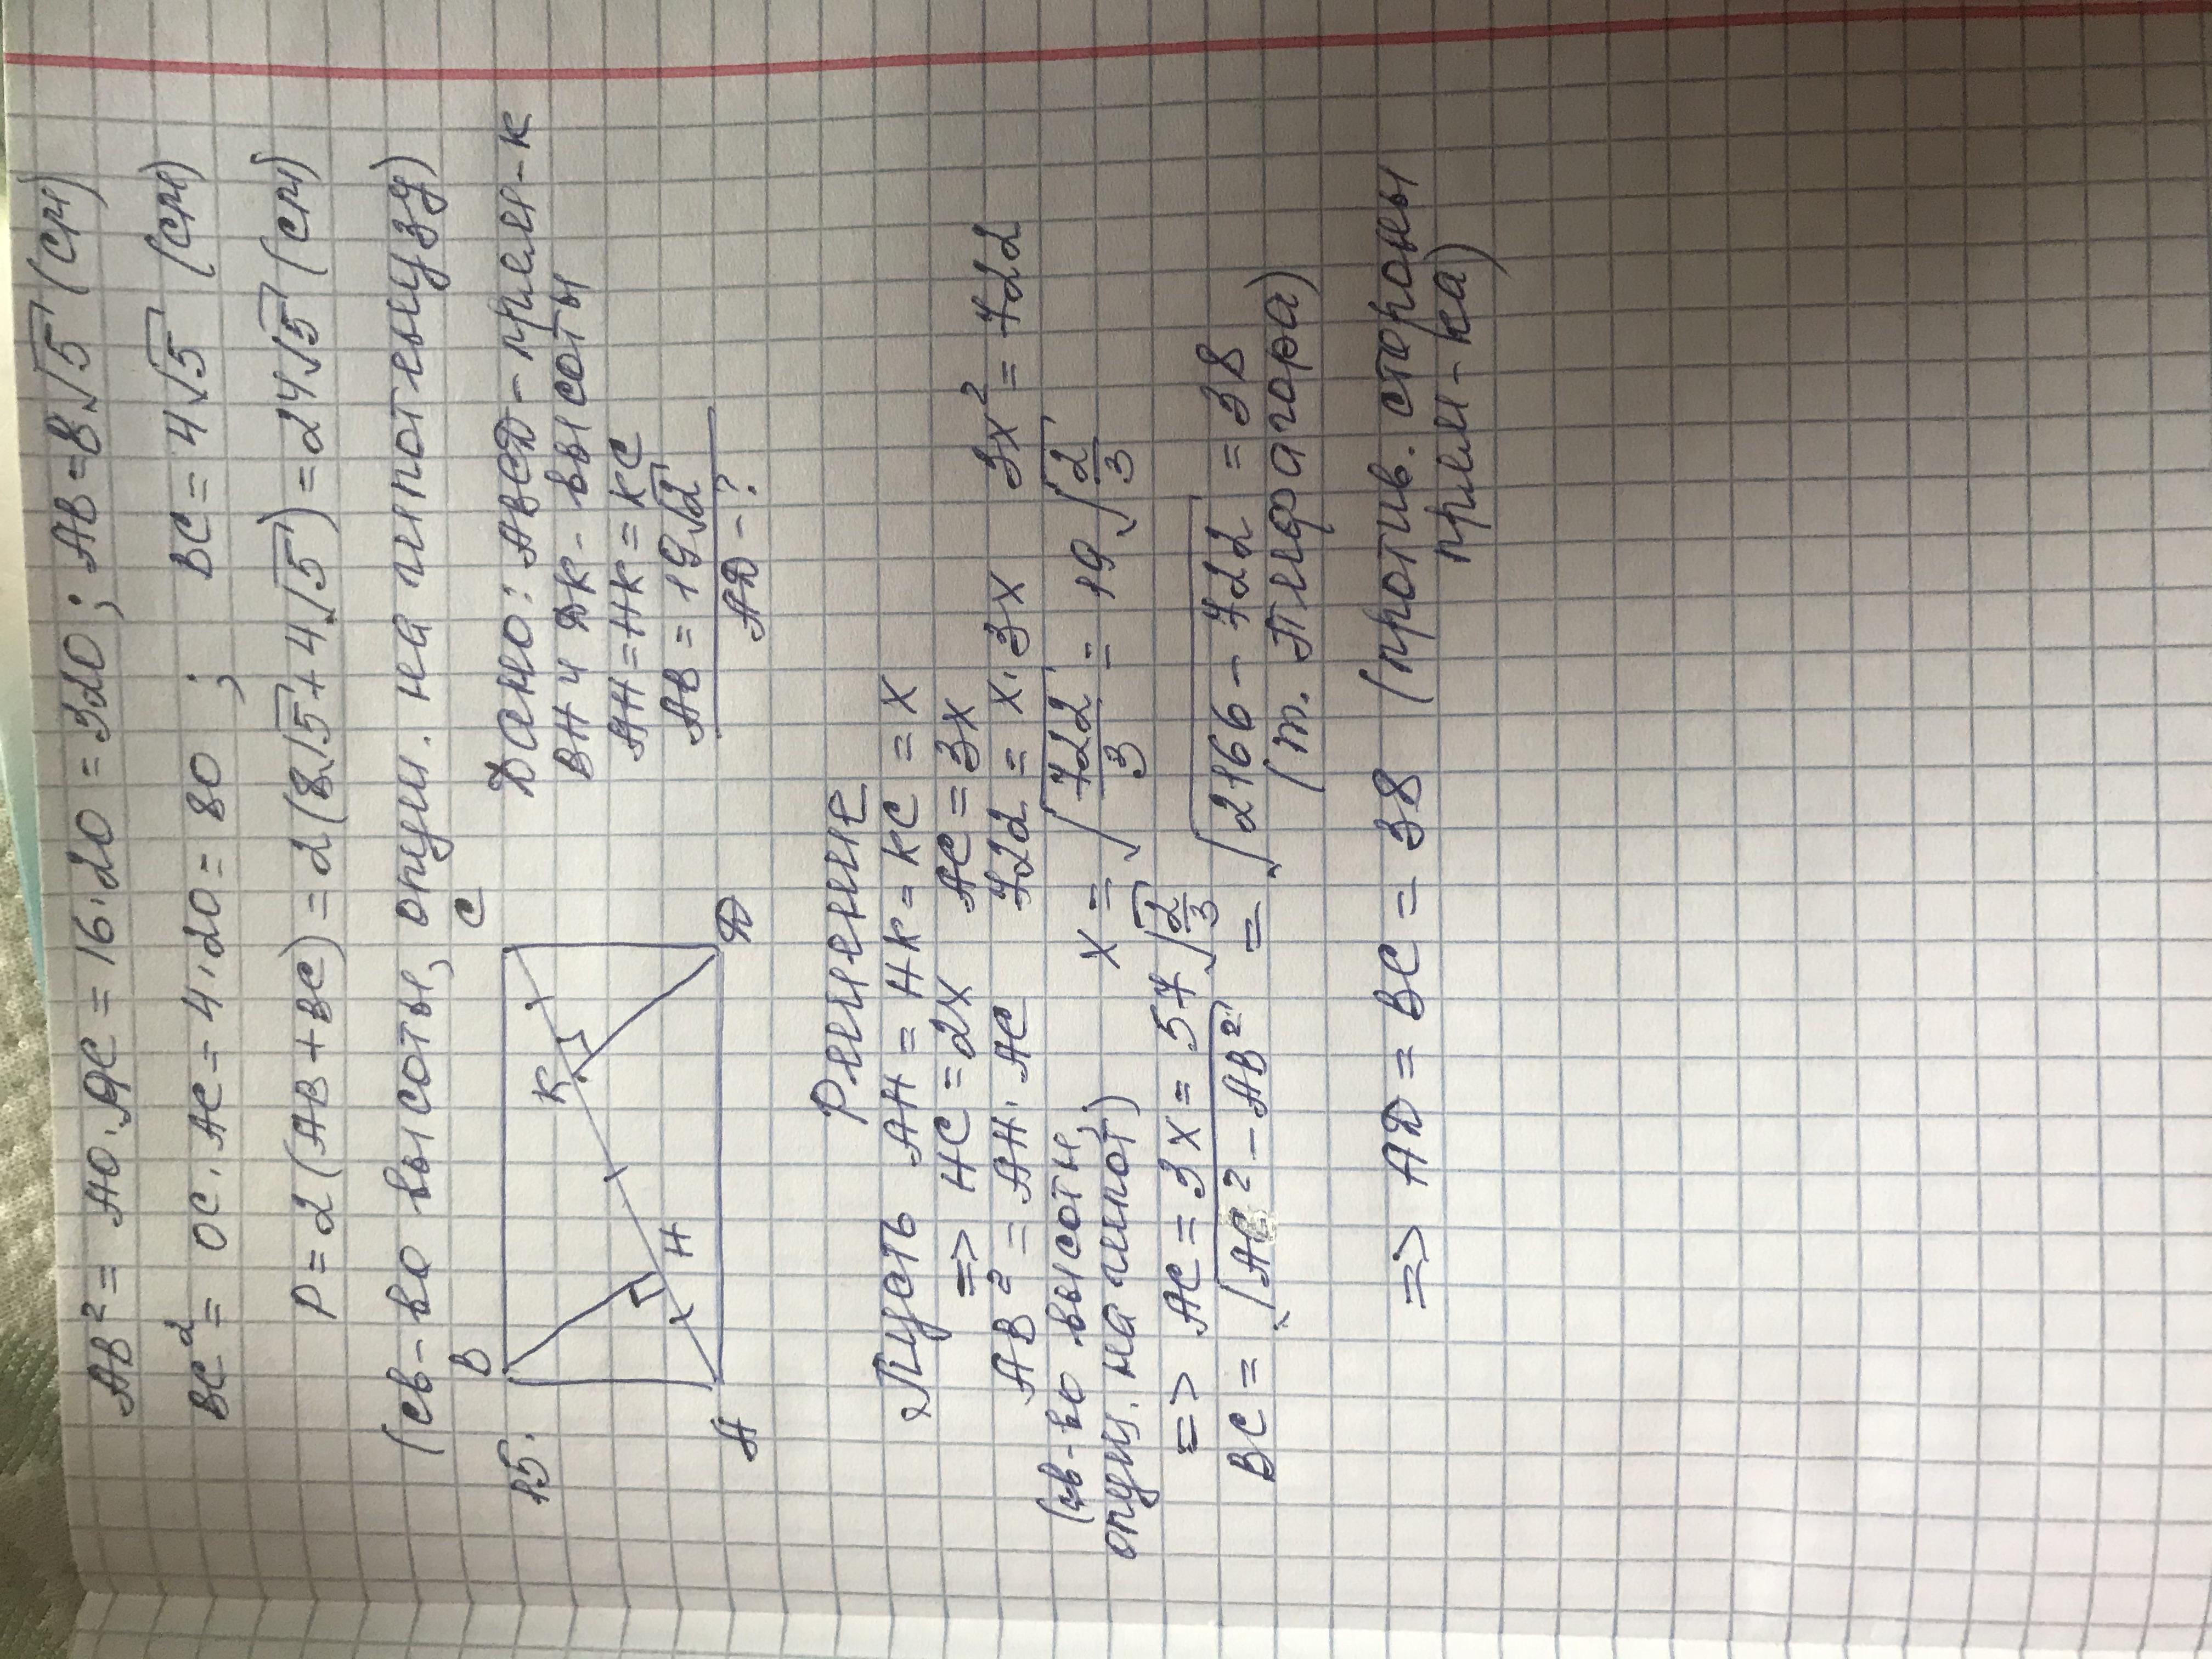 AB² = AO · AC = 16 · 20 = 320 ; AB = 8√5 (см)
BC² = OC · AC = 4 · 20 = 80 ; BC = 4√5 (см)
P = 2(AB + BC) = 2(8√5 + 4√5) = 24√5 (см)
(св-во высоты, опущ. на гипотенузу)
15.
B
C
K
H
A
D
Дано: ABCD - прям-к
BH и DK - высоты
AH = HK = KC
AB = 19√2
AD - ?
Решение
Пусть AH = HK = KC = x
=> HC = 2x AC = 3x
AB² = AH · AC 722 = x · 3x 3x² = 722
(св-во высоты, x = √(722/3) = 19√(2/3)
опущ. на гипот)
=> AC = 3x = 57√(2/3)
BC = √(AC² - AB²) = √(2166 - 722) = 38
(т. Пифагора)
=> AD = BC = 38 (против. стороны
прям-ка)